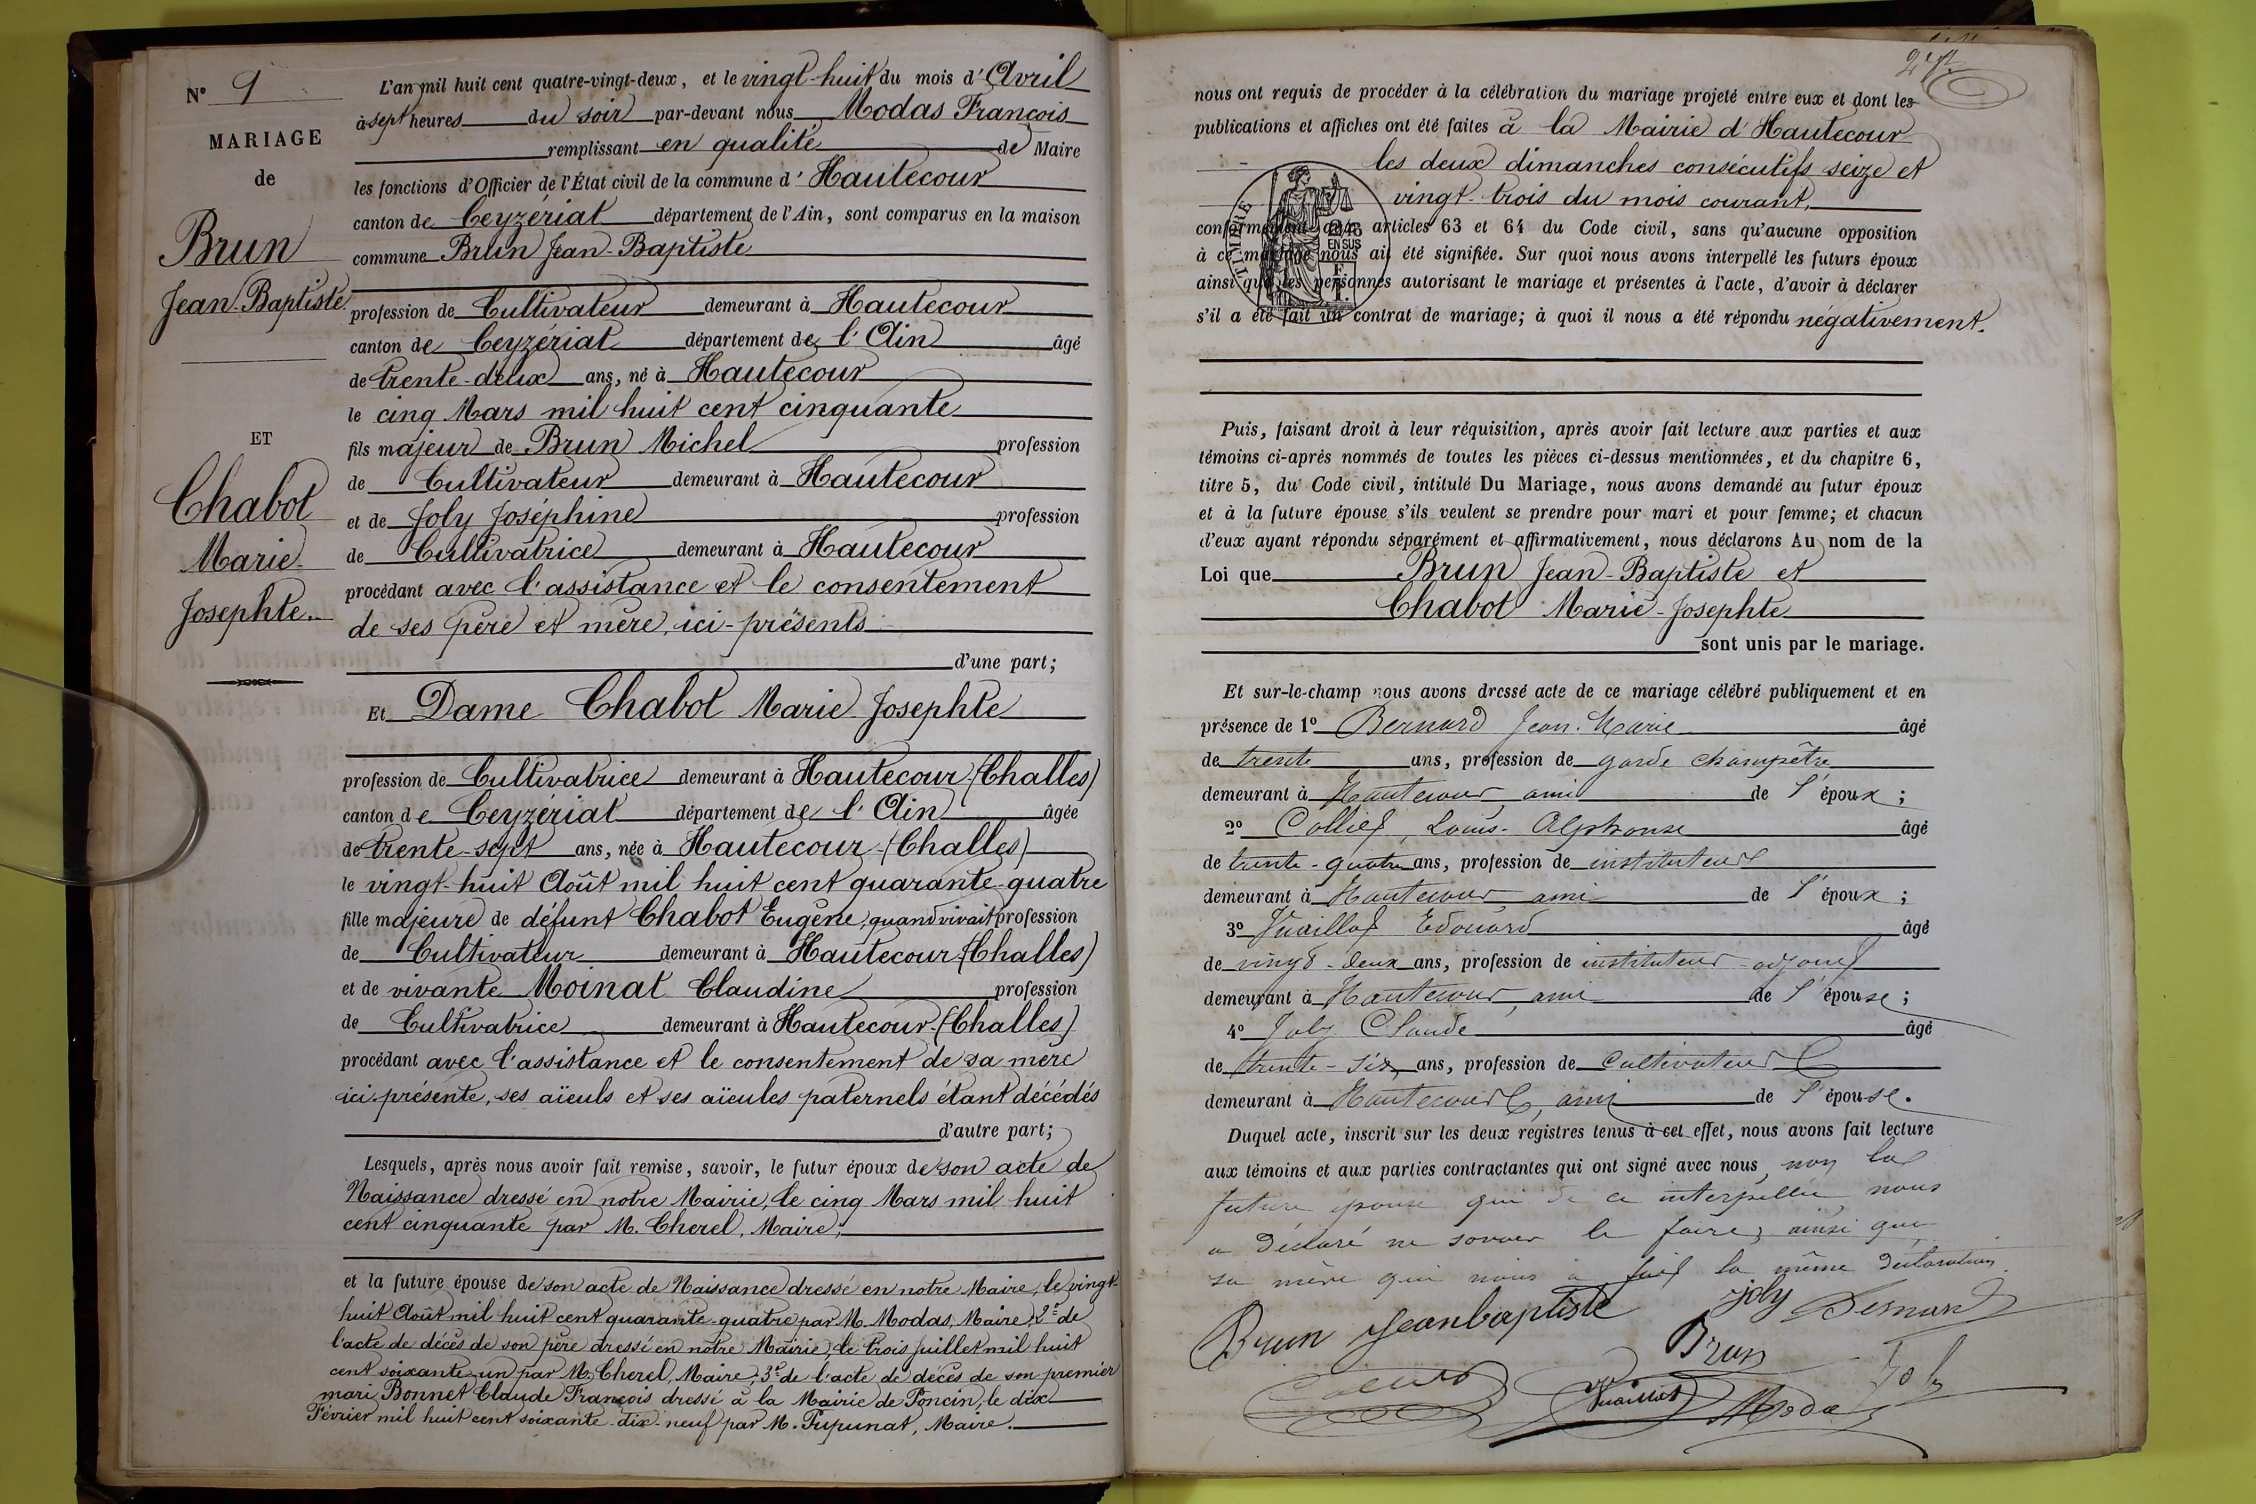 N° 9
MARIAGE
de
Brun
Jean-Baptiste
ET
Chabot
Marie
Josephte
L'an mil huit cent quatre-vingt-deux, et le vingt-huit du mois d'Avril
à sept heures du soir par-devant nous Modas François
remplissant en qualité de Maire
les fonctions d'Officier de l'État civil de la commune d'Hautecour
canton de Ceyzériat département de l'Ain, sont comparus en la maison
commune Brun Jean-Baptiste
profession de Cultivateur demeurant à Hautecour
canton de Ceyzériat département de l'Ain âgé
de trente-deux ans, né à Hautecour
le cinq Mars mil huit cent cinquante
fils majeur de Brun Michel profession
de Cultivateur demeurant à Hautecour
et de Joly Joséphine profession
de Cultivatrice demeurant à Hautecour
procédant avec l'assistance et le consentement
de ses père et mère, ici-présents
d'une part;
Et Dame Chabot Marie Josephte
profession de Cultivatrice demeurant à Hautecour-(Challes)
canton de Ceyzériat département de l'Ain âgée
de trente-sept ans, née à Hautecour-(Challes)
le vingt-huit Août mil huit cent quarante-quatre
fille majeure de défunt Chabot Eugène, quand vivait profession
de Cultivateur demeurant à Hautecour-(Challes)
et de vivante Moinat Claudine profession
de Cultivatrice demeurant à Hautecour-(Challes)
procédant avec l'assistance et le consentement de sa mère
ici-présente, ses aïeuls et ses aïeules paternels étant décédés
d'autre part;
Lesquels, après nous avoir fait remise, savoir, le futur époux de son acte de
Naissance dressé en notre Mairie, le cinq Mars mil huit
cent cinquante par M. Cherel, Maire;
et la future épouse de son acte de Naissance dressé en notre Maire, le vingt-
huit Août mil huit cent quarante-quatre par M. Modas, Maire; 2° de
l'acte de décès de son père dressé en notre Mairie, le trois Juillet mil huit
cent soixante-un par M. Cherel, Maire; 3° de l'acte de décès de son premier
mari Bonnet Claude François dressé à la Mairie de Poncin, le dix
Février mil huit cent soixante-dix-neuf par M. Pupunat, Maire.
nous ont requis de procéder à la célébration du mariage projeté entre eux et dont les
publications et affiches ont été faites à la Mairie d'Hautecour
les deux dimanches consécutifs seize et
vingt-trois du mois courant,
TIMBRE
2/10
EN SUS
conformément aux articles 63 et 64 du Code civil, sans qu'aucune opposition
à ce mariage nous ait été signifiée. Sur quoi nous avons interpellé les futurs époux
ainsi que les personnes autorisant le mariage et présentes à l'acte, d'avoir à déclarer
s'il a été fait un contrat de mariage; à quoi il nous a été répondu négativement.
Puis, faisant droit à leur réquisition, après avoir fait lecture aux parties et aux
témoins ci-après nommés de toutes les pièces ci-dessus mentionnées, et du chapitre 6,
titre 5, du Code civil, intitulé Du Mariage, nous avons demandé au futur époux
et à la future épouse s'ils veulent se prendre pour mari et pour femme; et chacun
d'eux ayant répondu séparément et affirmativement, nous déclarons Au nom de la
Loi que Brun Jean-Baptiste et
Chabot Marie-Josephte
sont unis par le mariage.
Et sur-le-champ nous avons dressé acte de ce mariage célébré publiquement et en
présence de 1° Bernard Jean-Marie âgé
de trente ans, profession de garde champêtre
demeurant à Hautecour, ami de l'époux;
2° Collief, Louis-Alphonse âgé
de trente-quatre ans, profession de instituteur
demeurant à Hautecour, ami de l'époux;
3° Vuaillat Edouard âgé
de vingt-deux ans, profession de instituteur-adjoint
demeurant à Hautecour, ami de l'épouse;
4° Joly Claude âgé
de trente-six ans, profession de Cultivateur
demeurant à Hautecour, ami de l'épouse.
Duquel acte, inscrit sur les deux régistres tenus à cet effet, nous avons fait lecture
aux témoins et aux parties contractantes qui ont signé avec nous, non la
future épouse qui de ce interpellée nous
a déclaré ne savoir le faire, ainsi que
sa mère qui nous a fait la même déclaration.
Brun Jeanbaptiste joly Bernard
Brun Joly
Vuaillat Modas